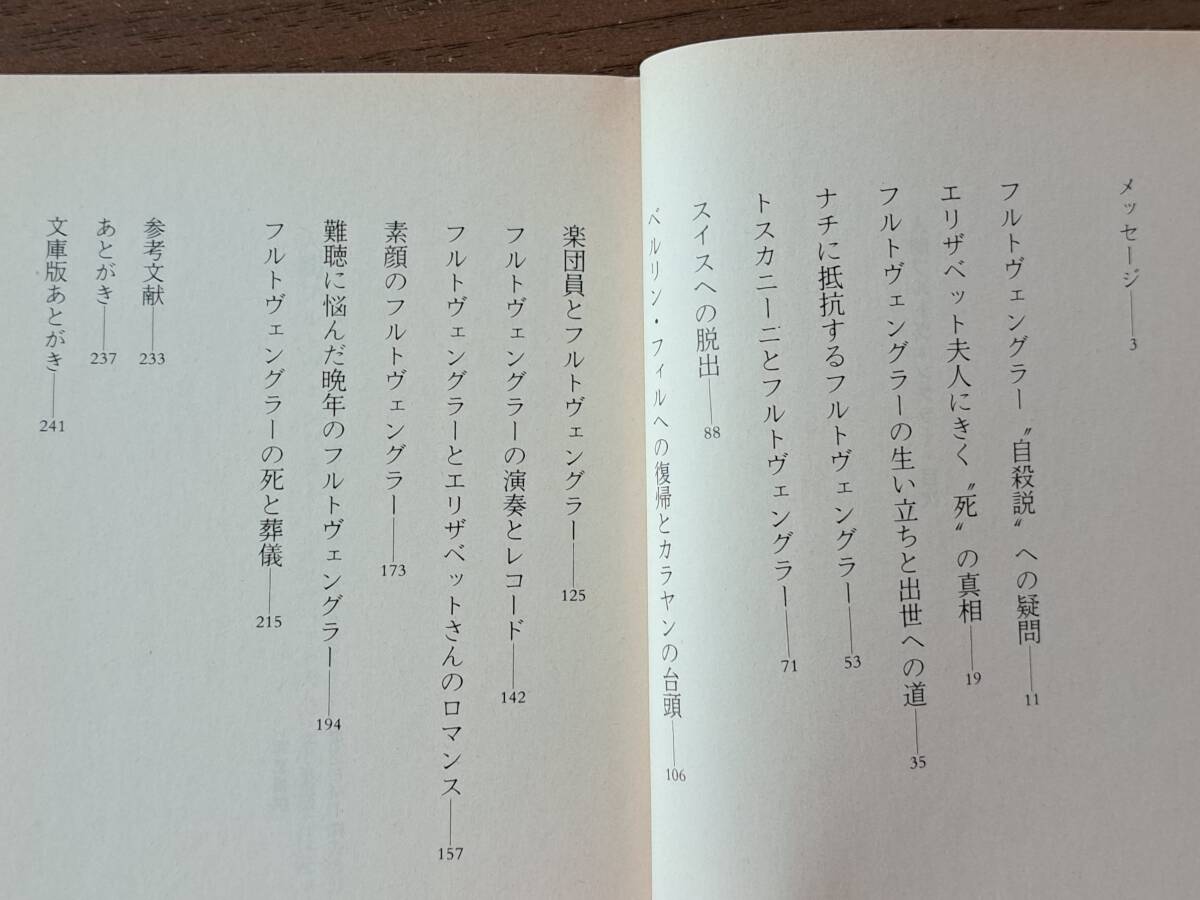 メッセージ――3
フルトヴェングラー〝自殺説〟への疑問――11
エリザベット夫人にきく〝死〟の真相――19
フルトヴェングラーの生い立ちと出世への道――35
ナチに抵抗するフルトヴェングラー――53
トスカニーニとフルトヴェングラー――71
スイスへの脱出――88
ベルリン・フィルへの復帰とカラヤンの台頭――106
楽団員とフルトヴェングラー――125
フルトヴェングラーの演奏とレコード――142
フルトヴェングラーとエリザベットさんのロマンス――157
素顔のフルトヴェングラー――173
難聴に悩んだ晩年のフルトヴェングラー――194
フルトヴェングラーの死と葬儀――215
参考文献――233
あとがき――237
文庫版あとがき――241